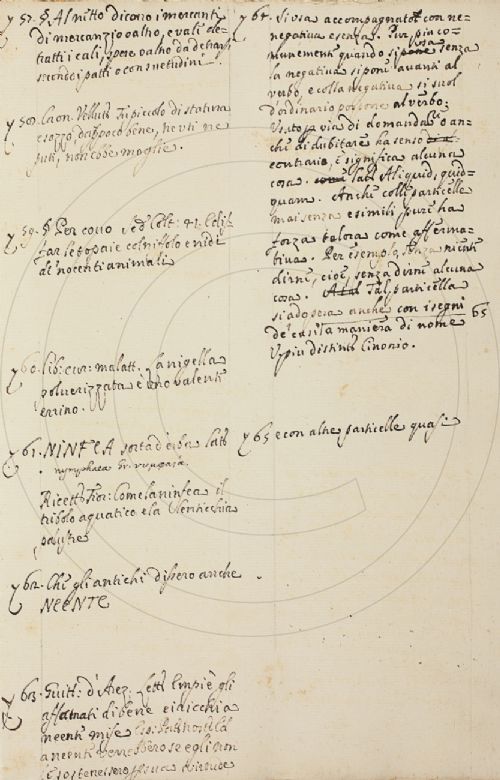 57. §. Al netto dicono i mercanti
di mercanzio o altro, e vali de-
tratti i cali, spese o altro da detrarsi
secondo i patti o consuetudini.
58. Caon. Vellut. Fu piccolo di statura
e sozzo da poco bene, no uti ne
suti, non ebbe moglie.
59. §. Per covo
far le topaie col nifolo e nidi
di nocenti animali
60. Lib: cur: malatt. La nigella
polverizzata è uno valente
errino.
61. NINFEA sorta d'erba latt
nymphaea
Ricett: Fior: Come la ninfea il
tribolo aquatico e la lenticchia
palustre
62. Che gli antichi dissero anche
NEENTE
63. Guitt: d'Arez: Lett: Empiè gli
affamati di bene e i dicchia
neenti mise
a neente verrebbero se egli non
li sostenesse virtude
64. Si usa accompagnato con ne-
negativa e senza. Per più co-
munemente quando si usa senza
la negativa si pone avanti al
verbo, e colla negativa si suol
d'ordinario porre al verbo.
Usato per via di domanda o an-
che di dubitare ha senso
contrario, e significa alcuna
cosa. Lat. Aliquid, quid-
quam. Anche colle particelle
mai senza e simili, pure ha
forza talora come afferma-
tiva. Per esempio, senza niente
dirne, cioè, senza dirne alcuna
cosa. Tal particella
si adopera anche con i segni 65
de' casi a maniera di nome
V. più distinte Cinonio.
65 e con altre particelle quasi